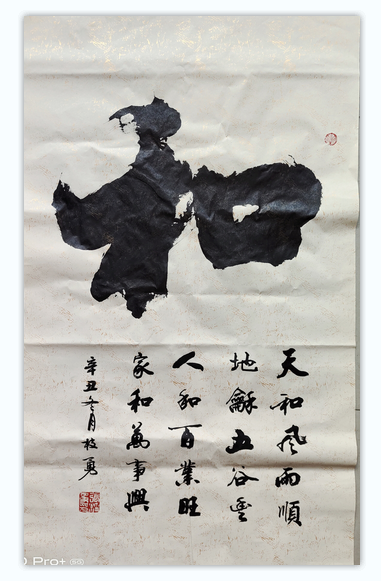 和
天和风雨順
地龢五谷豊
人和百業旺
家和萬事興
辛丑冬月枝勇
Pro+ 5G